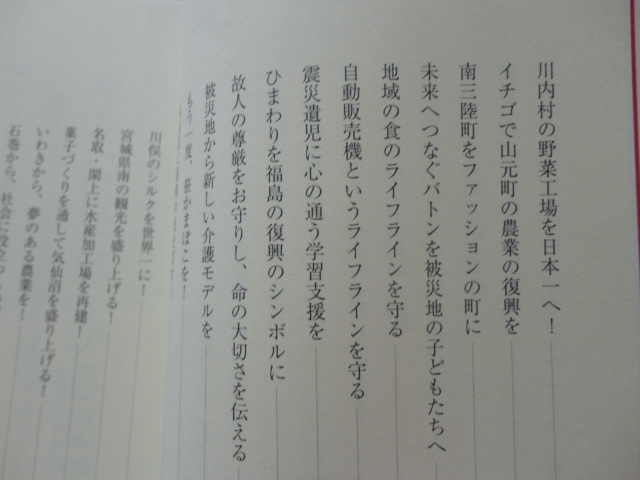 川内村の野菜工場を日本一へ！
イチゴで山元町の農業の復興を
南三陸町をファッションの町に
未来へつなぐバトンを被災地の子どもたちへ
地域の食のライフラインを守る
自動販売機というライフラインを守る
震災遺児に心の通う学習支援を
ひまわりを福島の復興のシンボルに
故人の尊厳をお守りし、命の大切さを伝える
被災地から新しい介護モデルを
もう一度、笹かまぼこを！
川俣のシルクを世界一に！
宮城県南の観光を盛り上げる！
名取・閖上に水産加工場を再建！
菓子づくりを通して気仙沼を盛り上げる！
いわきから、夢のある農業を！
石巻から、社会に役立つ